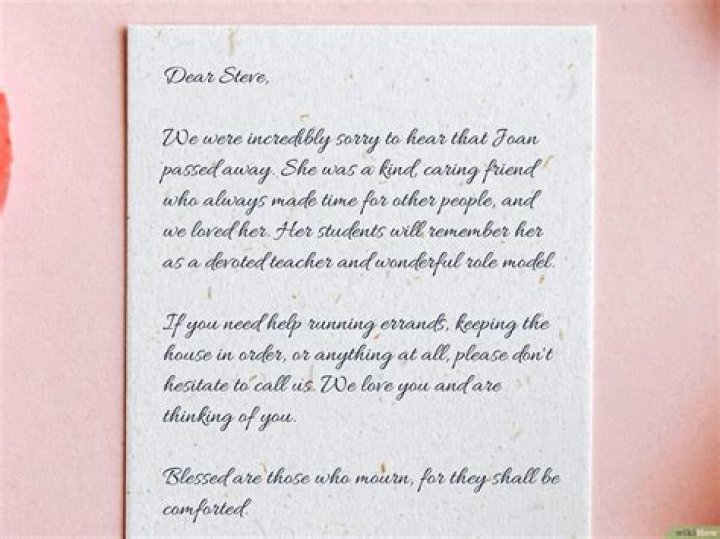 Dear Steve,
We were incredibly sorry to hear that Joan
passed away. She was a kind, caring friend
who always made time for other people, and
we loved her. Her students will remember her
as a devoted teacher and wonderful role model.
If you need help running errands, keeping the
house in order, or anything at all, please don't
hesitate to call us. We love you and are
thinking of you.
Blessed are those who mourn, for they shall be
comforted.
wikiHow